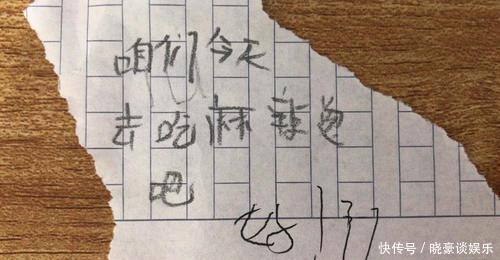 咱们今天
去吃麻辣烫
吧
好
快传号 / 晓豪谈娱乐